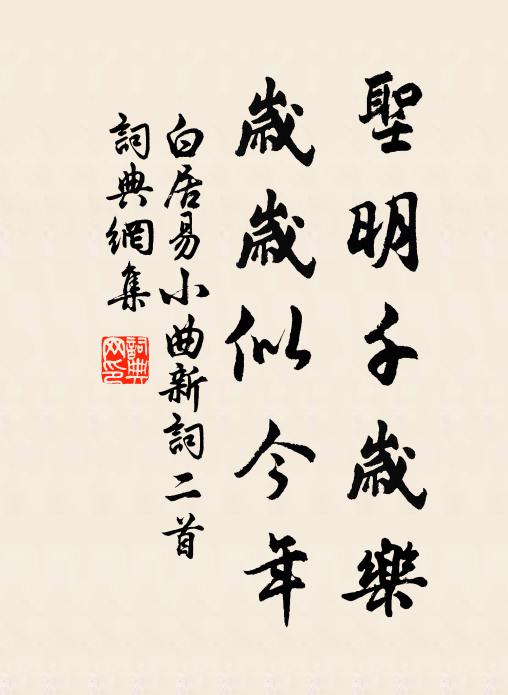 聖明千歲樂
歲歲似今年
白居易小曲新詞二首
詞典網集
詞典網印